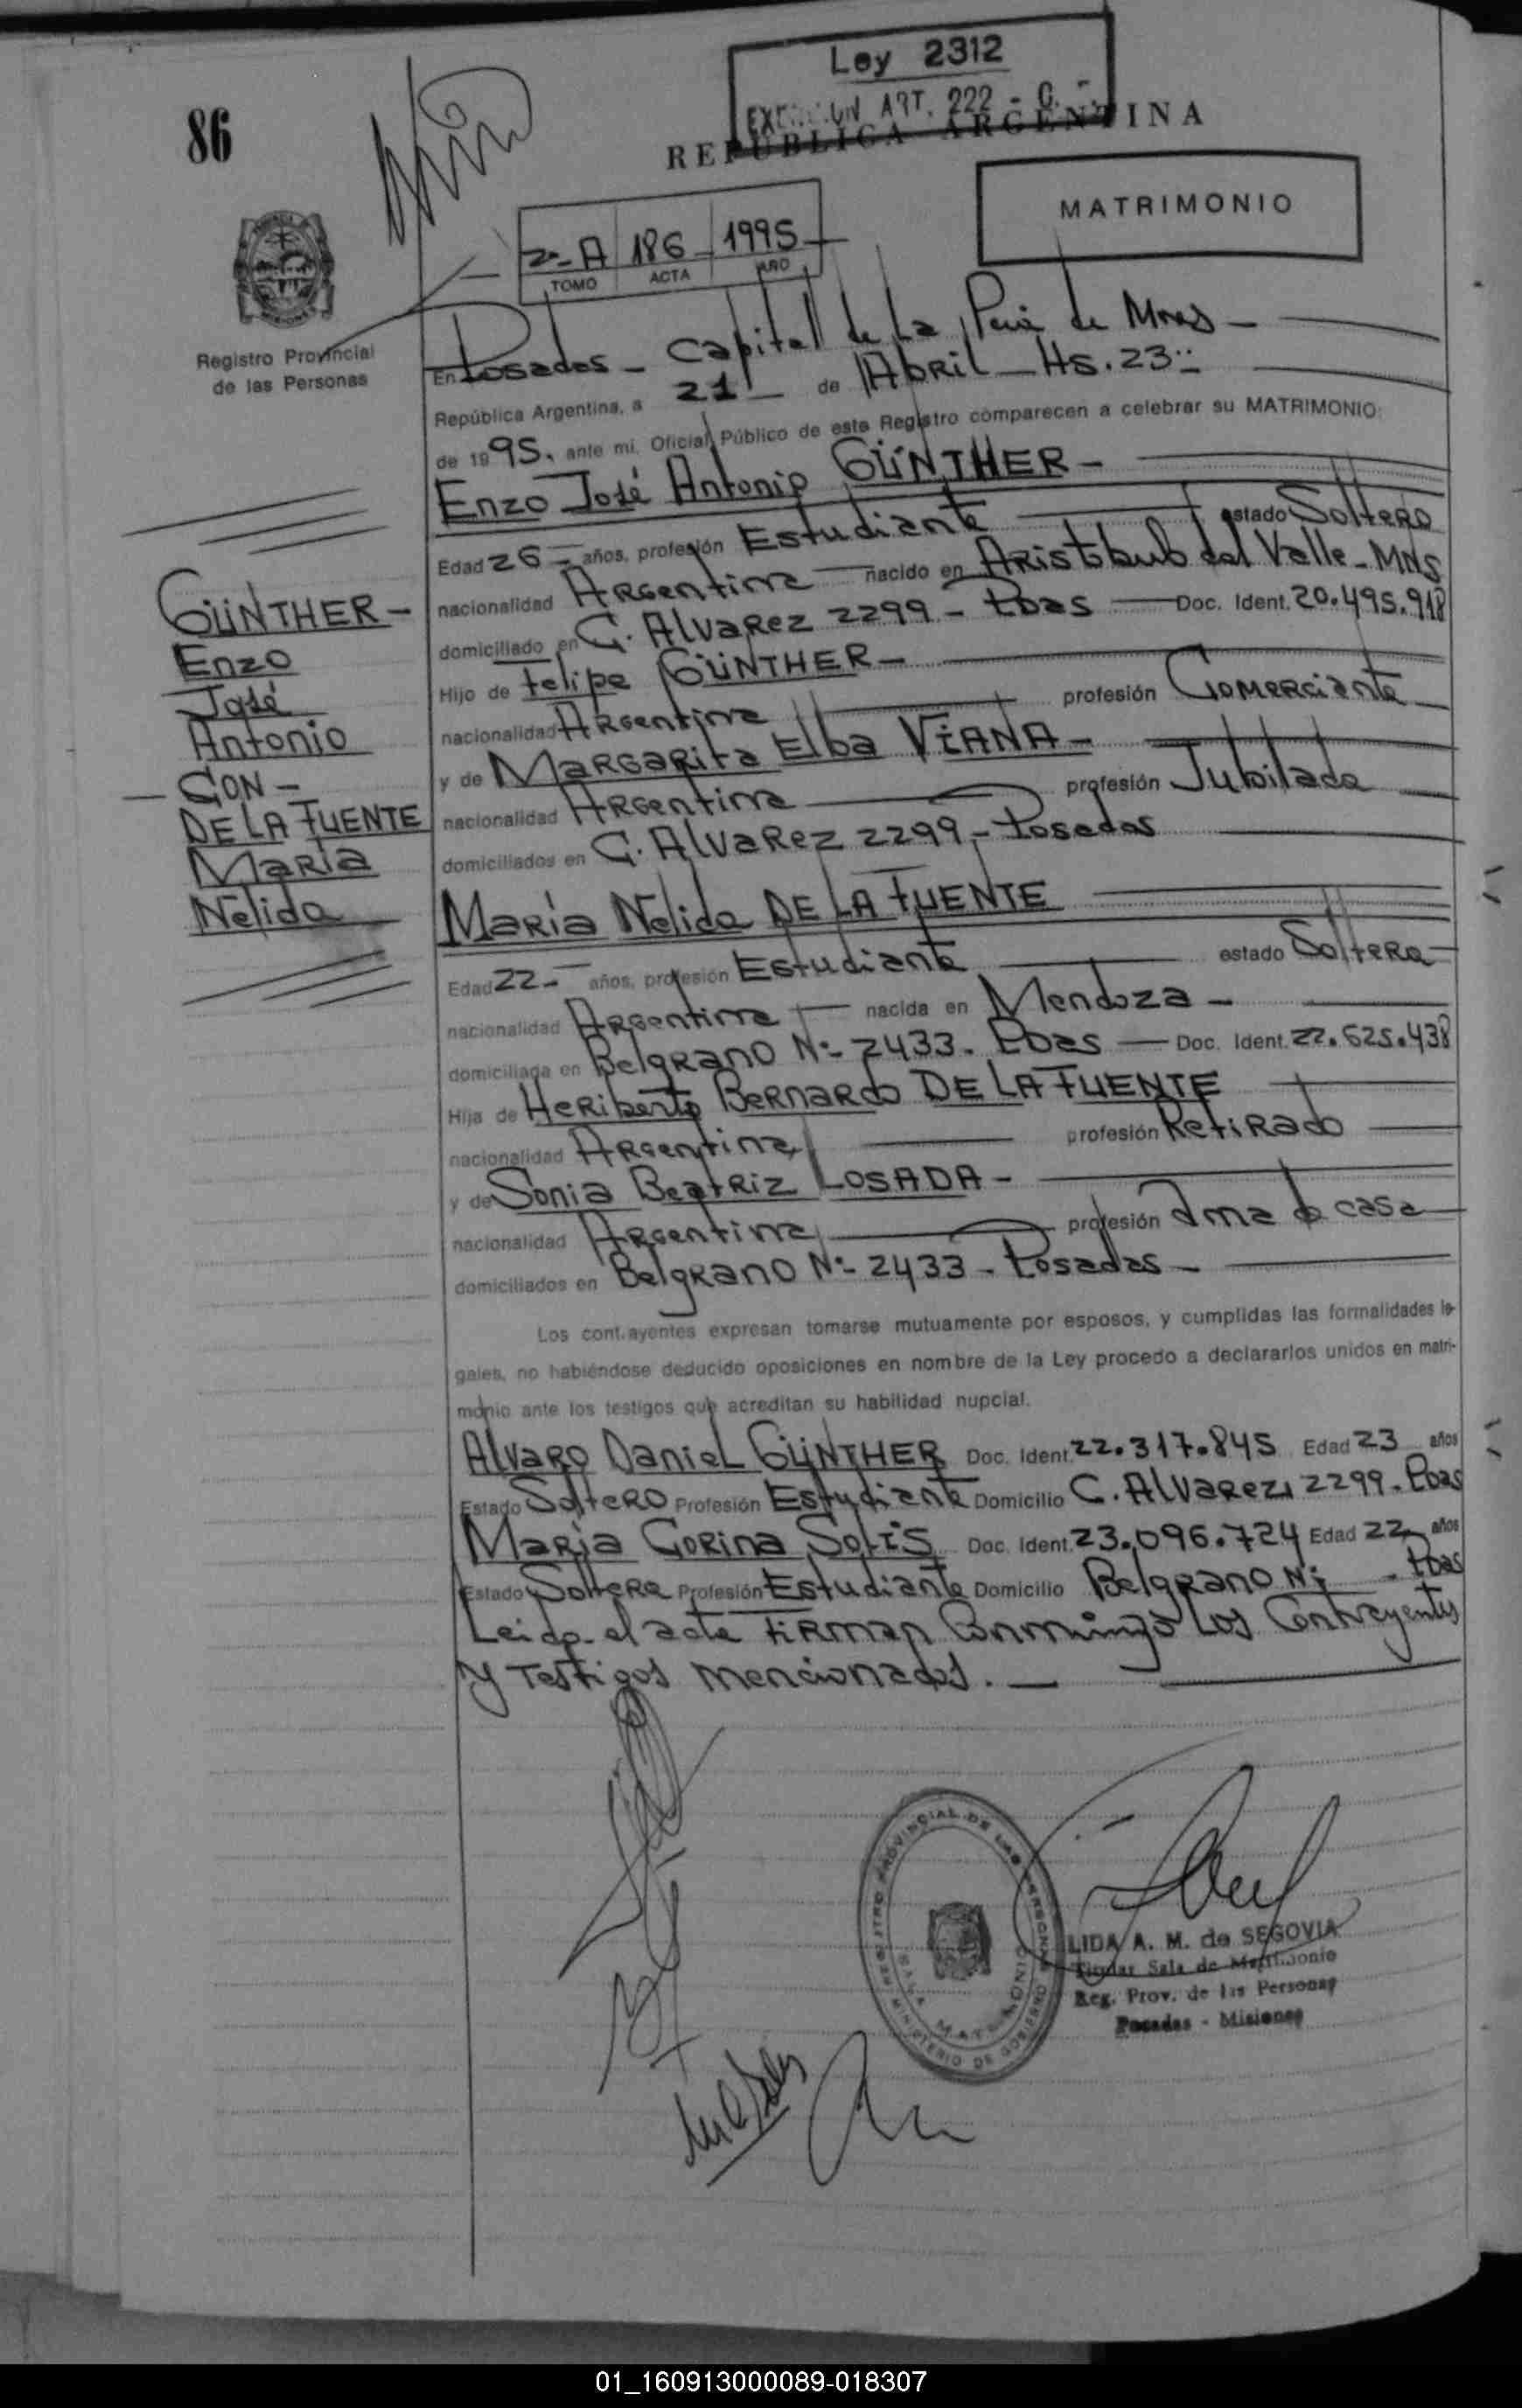 Ley 2312
ART. 222 - 
86
REPUBLICA ARGENTINA
MATRIMONIO
2-A 186 1995
TOMO ACTA AÑO
Registro Provincial
de las Personas
En Posadas - Capital de La Pcia de Mnes -
República Argentina, a 21 - de Abril - Hs. 23:
de 1995. ante mi, Oficial Público de este Registro comparecen a celebrar su MATRIMONIO:
Enzo José Antonio GÜNTHER -
Edad 26 - años, profesión Estudiante estado Soltero
nacionalidad Argentina nacido en Aristobulo del Valle - MNS
domiciliado en C. Alvarez 2299 - Pdas - Doc. Ident. 20.495.918
Hijo de Felipe GÜNTHER -
nacionalidad Argentina profesión Comerciante
y de Margarita Elba VIANA -
nacionalidad Argentina profesión Jubilada
domiciliados en C. Alvarez 2299 - Posadas
GÜNTHER -
Enzo
José
Antonio
CON -
DE LA FUENTE
María
Nelida
María Nelida DE LA FUENTE
Edad 22 - años, profesión Estudiante estado Soltera
nacionalidad Argentina nacida en Mendoza -
domiciliada en Belgrano Nº 2433 - Pdas - Doc. Ident. 22.625.438
Hija de Heriberto Bernardo DE LA FUENTE
nacionalidad Argentina profesión Retirado
y de Sonia Beatriz LOSADA -
nacionalidad Argentina profesión Ama de casa
domiciliados en Belgrano Nº 2433 - Posadas -
Los contrayentes expresan tomarse mutuamente por esposos, y cumplidas las formalidades le-
gales, no habiéndose deducido oposiciones en nombre de la Ley procedo a declararlos unidos en matri-
monio ante los testigos que acreditan su habilidad nupcial.
Alvaro Daniel GÜNTHER Doc. Ident. 22.317.845 Edad 23 años
Estado Soltero Profesión Estudiante Domicilio C. Alvarez 2299 - Pdas
María Corina Solís Doc. Ident. 23.096.724 Edad 22 años
Estado Soltera Profesión Estudiante Domicilio Belgrano Nº - Pdas
Leido el acta firman conmigo Los Contrayentes
y Testigos mencionados. -
REGISTRO PROVINCIAL DE LAS PERSONAS
SALA MATRIMONIO
MINISTERIO DE GOBIERNO
LIDA A. M. de SEGOVIA
Titular Sala de Matrimonio
Reg. Prov. de las Personas
Posadas - Misiones
01_160913000089-018307